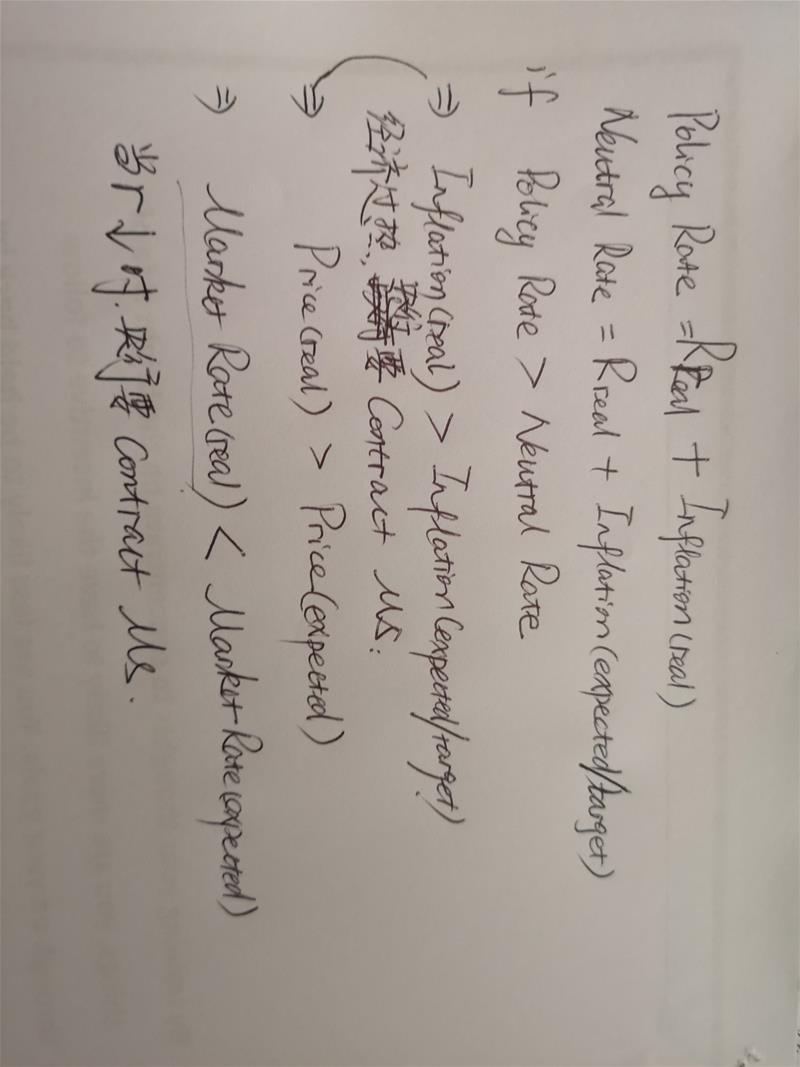 Policy Rate = Rreal + Inflation(real)
Neutral Rate = Rreal + Inflation(expected/target)
if Policy Rate > Neutral Rate
⇒ Inflation(real) > Inflation(expected/target)
经济过热, 央行要 Contract MS.
⇒ Price(real) > Price(expected)
⇒ Market Rate(real) < Market Rate(expected)
当r↓时, 央行要 Contract MS.